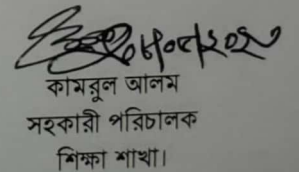 কামরুল আলম
সহকারী পরিচালক
শিক্ষা শাখা।